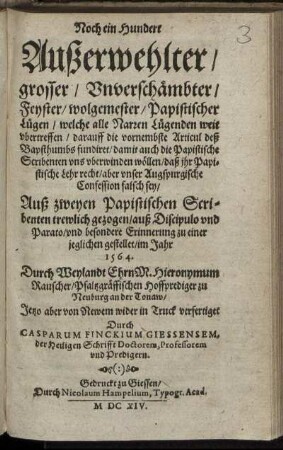 3
Noch ein Hundert
Außerwehlter /
grosser / Vnverschämbter /
Feyster / wolgemester / Papistischer
Lügen / welche alle Narren Lügenden weit
vbertreffen / darauff die vornembste Articul deß
Bapsthumbs fundiret / damit auch die Papistische
Scribenten vns vberwinden wöllen / daß jhr Papi-
stische Lehr recht / aber vnser Augspurgische
Confession falsch sey /
Auß zweyen Papistischen Scri-
benten trewlich gezogen / auß Discipulo vnd
Parato / vnd besondere Erinnerung zu einer
jeglichen gestellet / im Jahr
1564.
Durch Weylandt Ehrn M. Hieronymum
Rauscher / Pfaltzgräffischen Hoffprediger zu
Neuburg an der Tonaw /
Jetzo aber von Newem wider in Truck verfertiget
Durch
CASPARUM FINCKIUM GIESSENSEM,
der Heiligen Schrifft Doctorem, Professorem
vnd Predigern.
(:)
Gedruckt zu Giessen /
Durch Nicolaum Hampelium, Typogr. Acad.
M DC XIV.